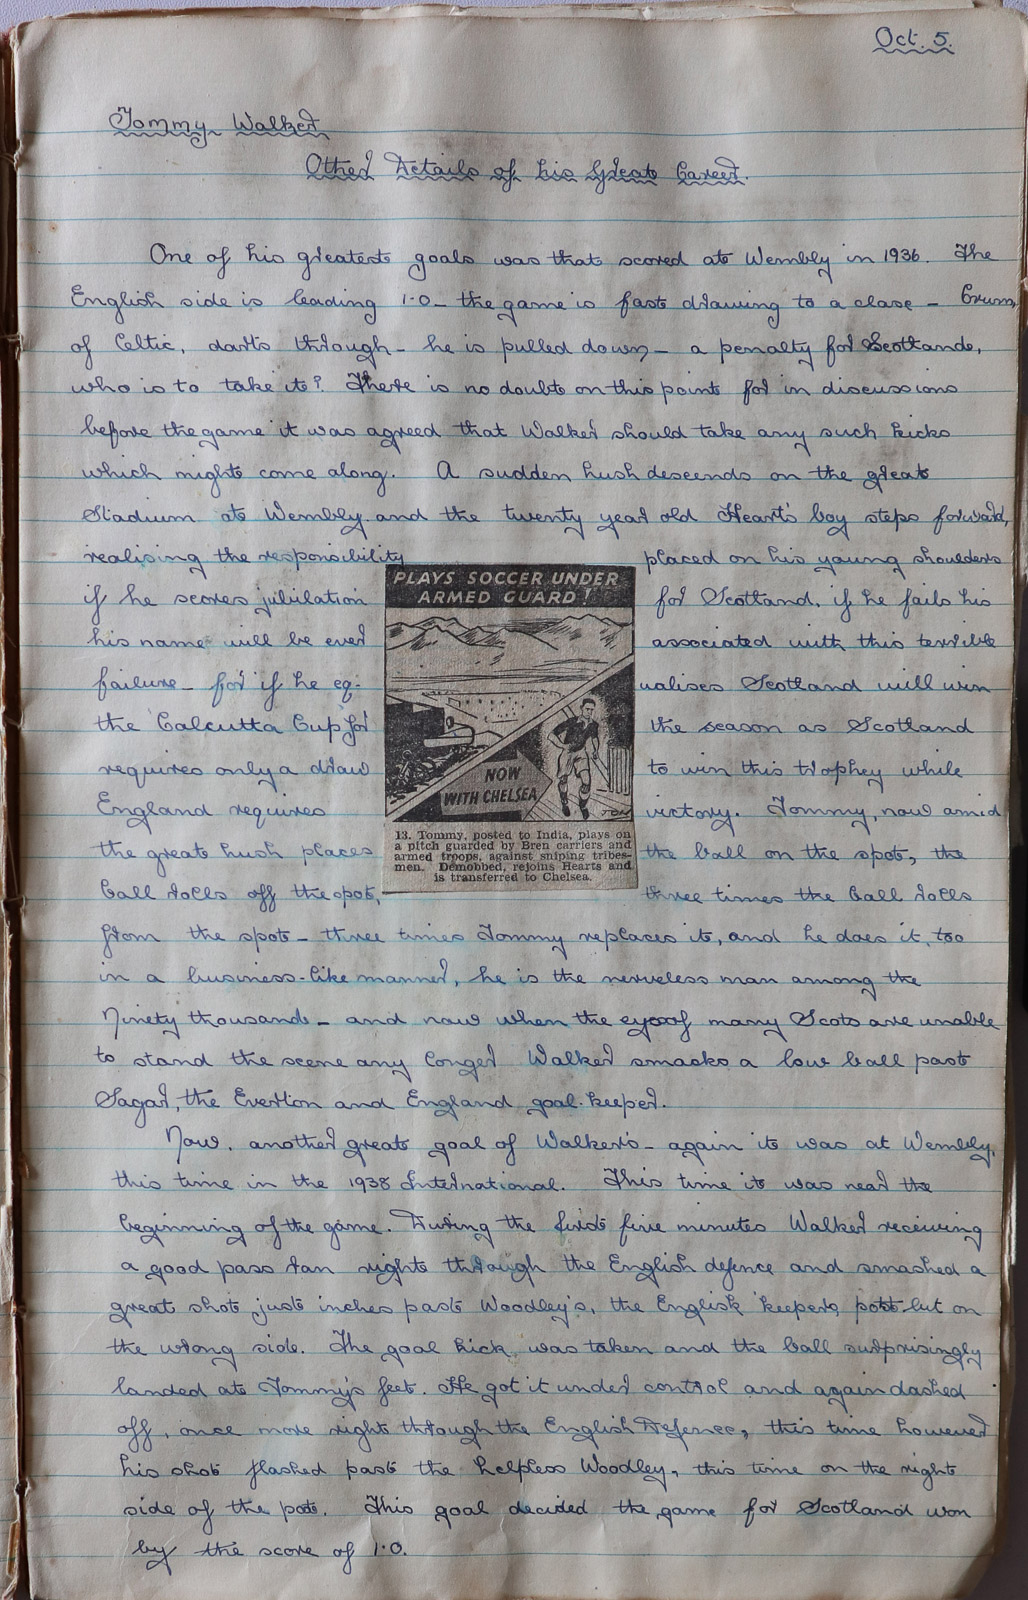 Oct. 5.
Tommy Walker
Other Details of his Great Career.
One of his greatest goals was that scored at Wembly in 1936. The
English side is leading 1-0 – the game is fast drawing to a close – Crum,
of Celtic, darts through – he is pulled down – a penalty for Scotland,
who is to take it? There is no doubt on this point for in discussions
before the game it was agreed that Walker should take any such kicks
which might come along. A sudden hush descends on the great
Stadium at Wembly and the twenty year old Heart's boy steps forward,
realising the responsibility placed on his young shoulders
if he scores jubilation for Scotland, if he fails his
his name will be ever associated with this terrible
failure – for if he eq- ualises Scotland will win
the Calcutta Cup for the season as Scotland
requires only a draw to win this trophey while
England requires victory. Tommy, now amid
the great hush places the ball on the spot, the
ball rolls off the spot, three times the ball rolls
from the spot – three times Tommy replaces it, and he does it, too
in a business-like manner, he is the nerveless man among the
Ninety thousand – and now when the eyes of many Scots are unable
to stand the scene any longer Walker smacks a low ball past
Sagar, the Everton and England goal-keeper.
Now, another great goal of Walker's – again it was at Wembly,
this time in the 1938 International. This time it was near the
beginning of the game. During the first five minutes Walker receiving
a good pass ran right through the English defence and smashed a
great shot just inches past Woodley's, the English keeper, post but on
the wrong side. The goal kick was taken and the ball surprisingly
landed at Tommy's feet. He got it under control and again dashed
off, once more right through the English Defence, this time however
his shot flashed past the helpless Woodley, this time on the right
side of the post. This goal decided the game for Scotland won
by the score of 1-0.
PLAYS SOCCER UNDER
ARMED GUARD!
NOW
WITH CHELSEA
13. Tommy, posted to India, plays on
a pitch guarded by Bren carriers and
armed troops, against sniping tribes-
men. Demobbed, rejoins Hearts and
is transferred to Chelsea.